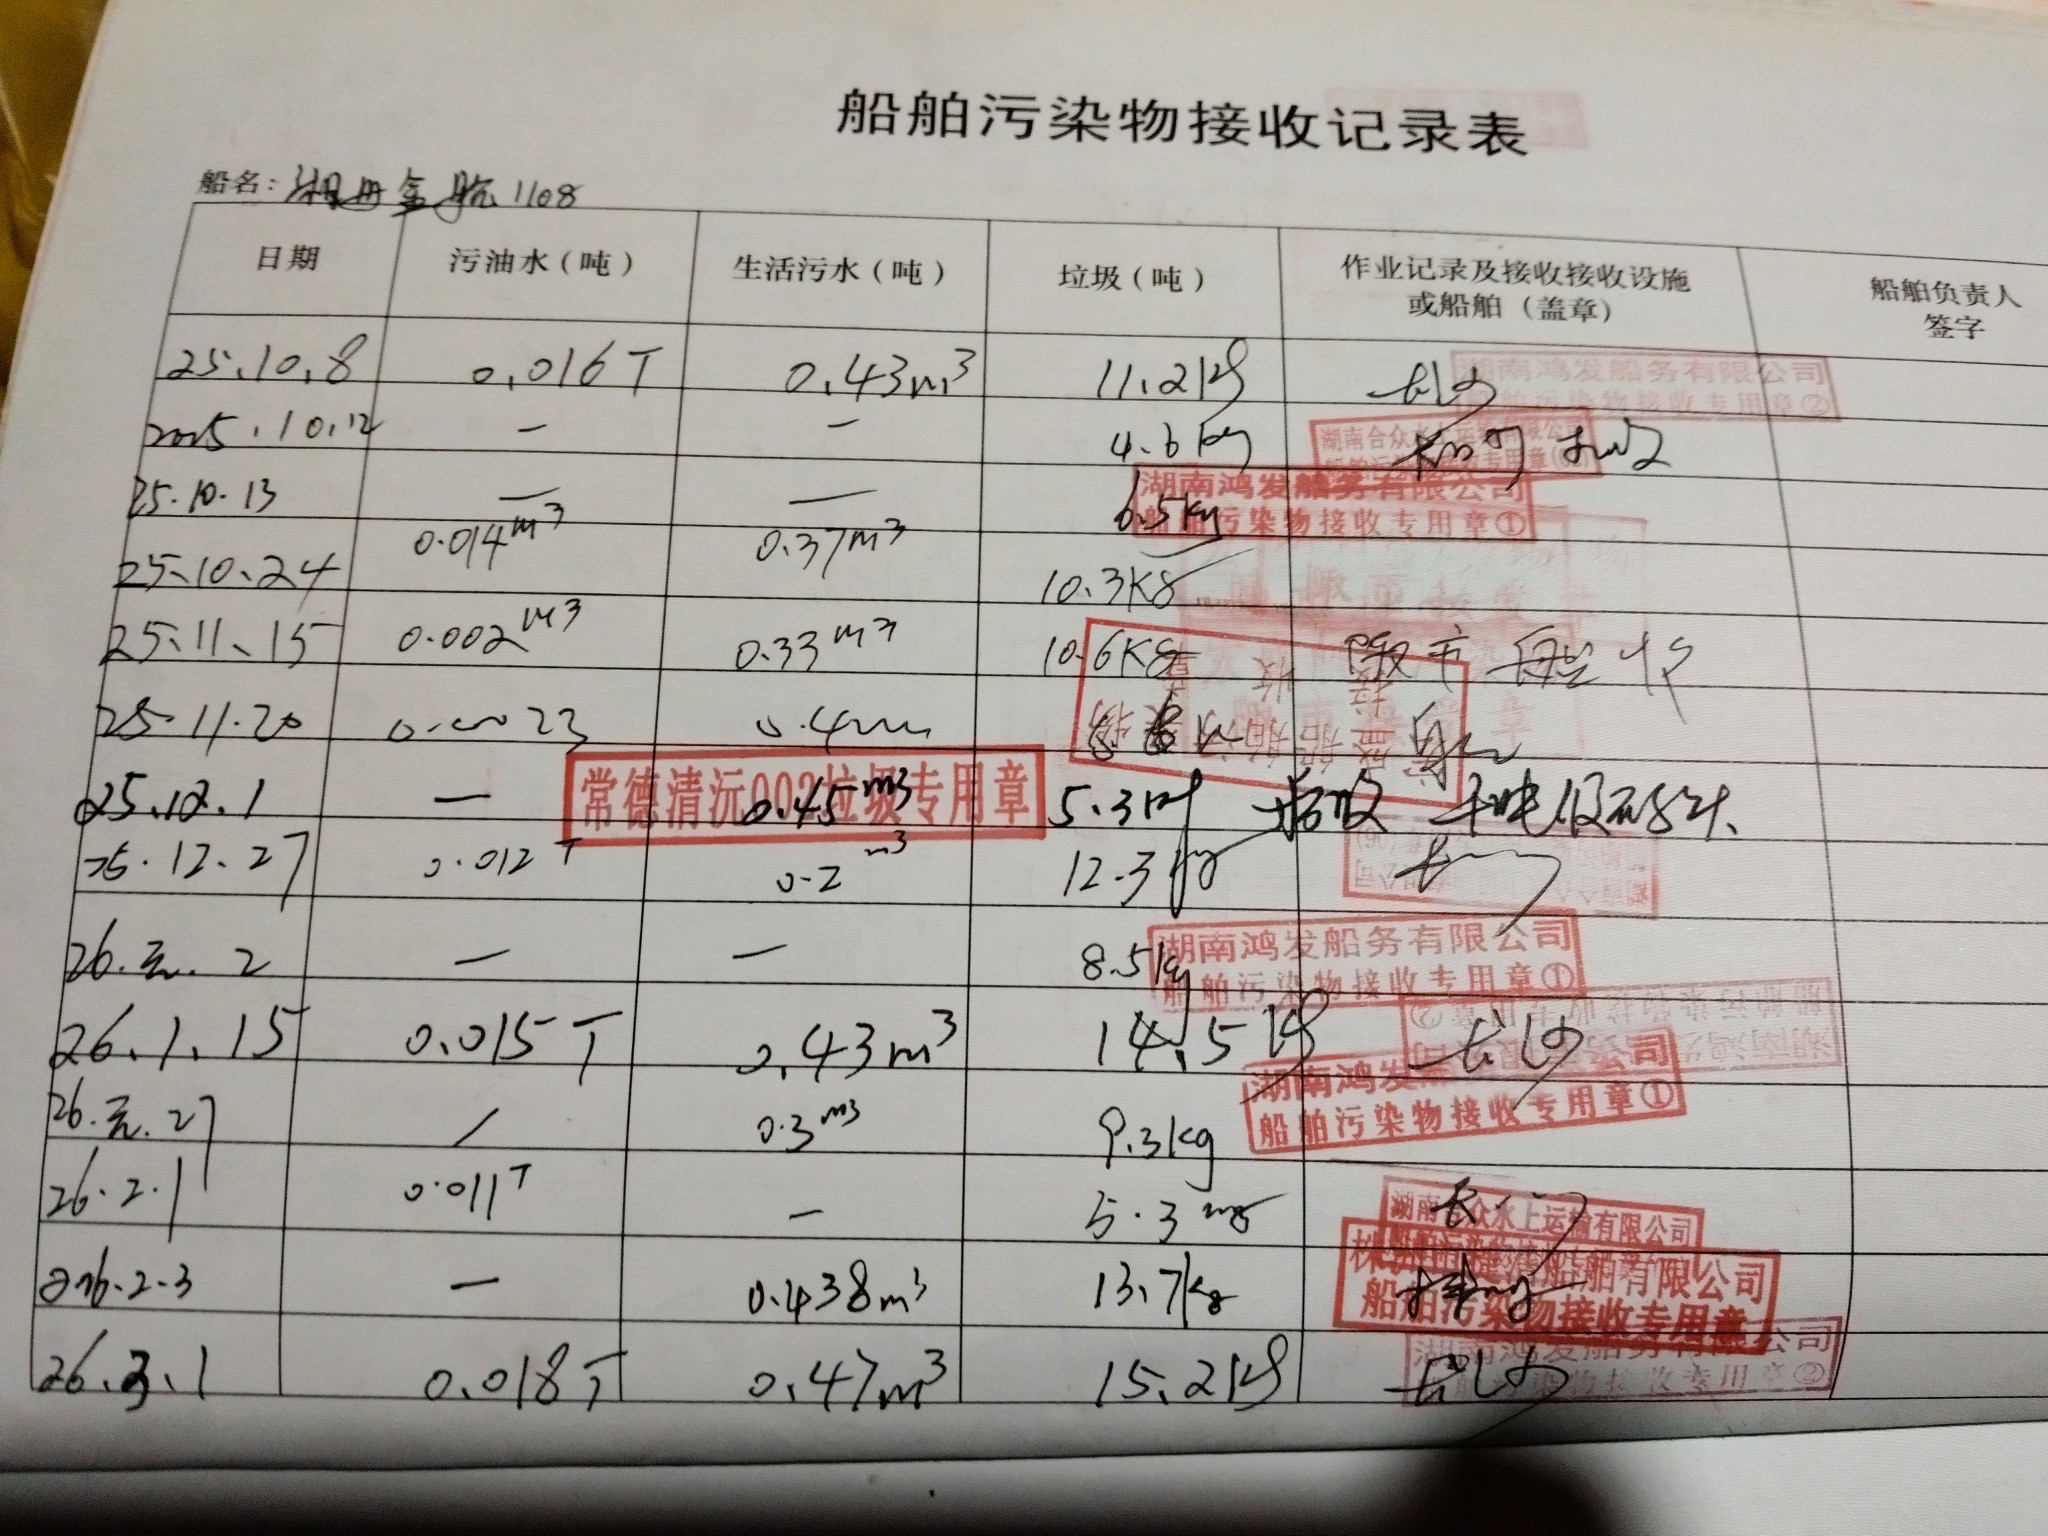 船舶污染物接收记录表
船名: 湘 金航1108
日期 污油水(吨) 生活污水(吨) 垃圾(吨) 作业记录及接收接收设施或船舶(盖章) 船舶负责人签字
25.10.8 0.016T 0.43m³ 11.2kg 长沙
湖南鸿发船务有限公司
船舶污染物接收专用章②
2025.10.12 — — 4.6kg
湖南合众水上运输有限公司
25.10.13 — — 6.5kg
湖南鸿发船务有限公司
船舶污染物接收专用章①
25.10.24 0.014m³ 0.37m³ 10.3KG
25.11.15 0.002m³ 0.33m³ 10.6KG
25.11.20
25.12.1 — 0.45m³ 5.3kg
常德清沅002垃圾专用章
25.12.27 0.012T 0.2m³ 12.3kg
26.元.2 — — 8.5kg
湖南鸿发船务有限公司
船舶污染物接收专用章①
26.1.15 0.015T 0.43m³ 14.5kg 长沙
26.元.27 / 0.3m³ 9.3kg
湖南鸿发船务有限公司
船舶污染物接收专用章①
26.2.1 0.011T — 5.3
湖南合众水上运输有限公司
2026.2.3 — 0.438m³ 13.7kg
船舶有限公司
船舶污染物接收专用章
26.3.1 0.018T 0.47m³ 15.2kg 长沙
湖南鸿发船务有限公司
船舶污染物接收专用章②